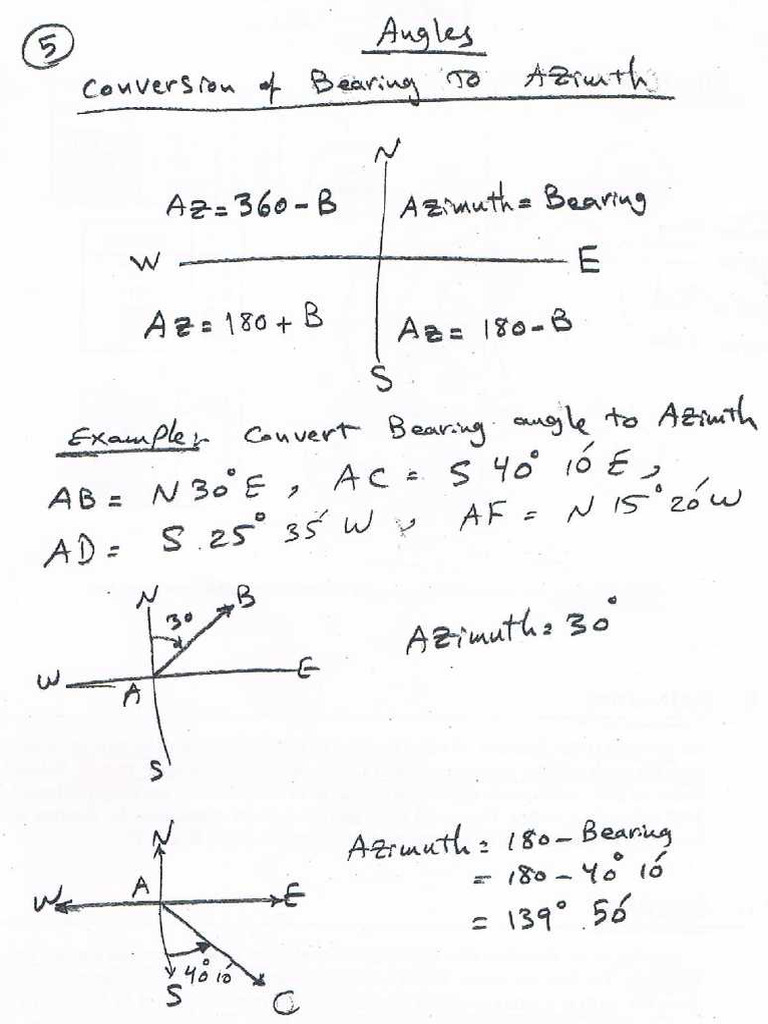 5
Angles
Conversion of Bearing To Azimth
N
Az = 360 - B
Azimuth = Bearing
W
E
Az = 180 + B
Az = 180 - B
S
Example: Convert Bearing angle to Azimth
AB = N 30° E, AC = S 40° 10' E,
AD = S 25° 35' W, AF = N 15° 20' W
N
B
30
Azimuth = 30°
W
A
E
S
N
Azimuth = 180 - Bearing
= 180 - 40° 10'
= 139° 50'
A
W
E
40° 10'
S
C